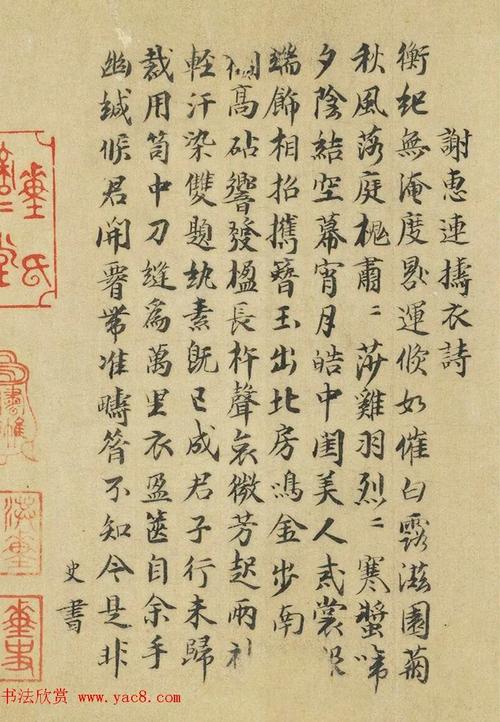 謝惠連擣衣詩
衡紀無淹度晷運倏如催白露滋園菊
秋風落庭槐肅〻莎雞羽烈〻寒螿啼
夕陰結空幕宵月皓中閨美人裳
端飾相招攜簪玉出北房鳴金步南
高砧響發楹長杵聲哀微芳起兩
輕汗染雙題紈素既已成君子行未歸
裁用笥中刀縫為萬里衣盈篋自余手
幽緘候君開帶准疇昔不知今是非
史書
书法欣赏 www.yac8.com